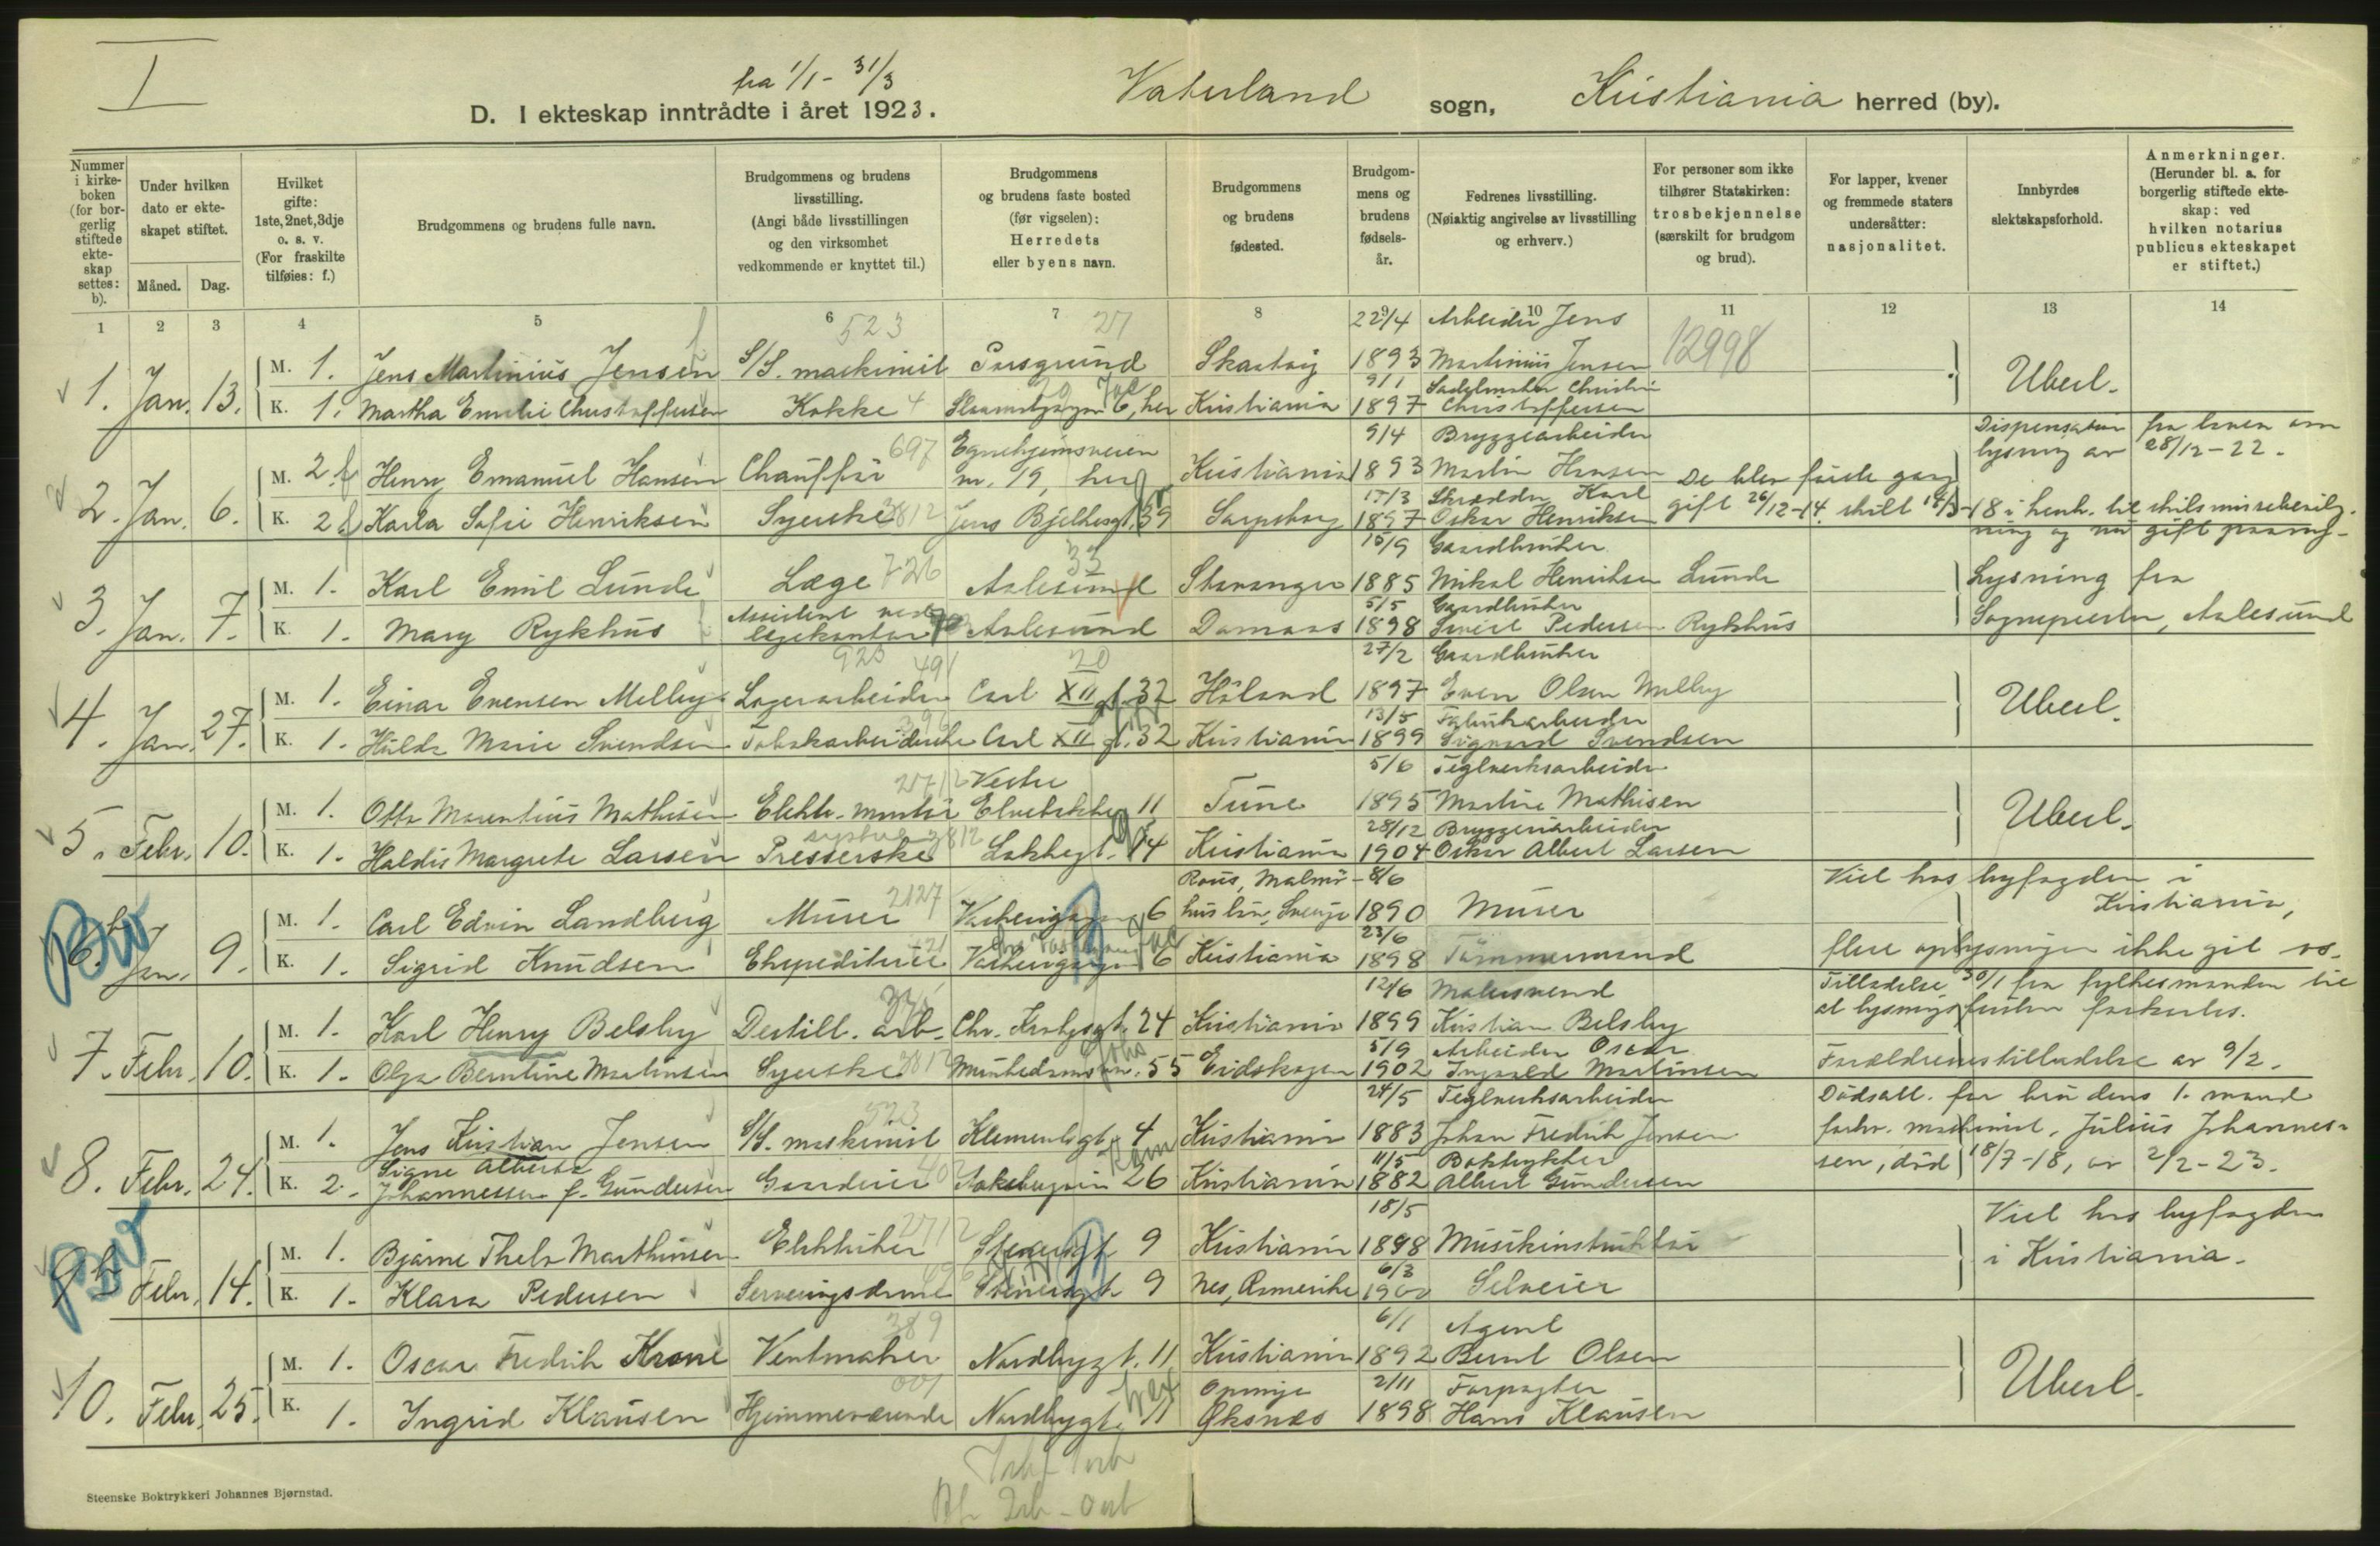 I
fra 1/1 - 31/3
D. I ekteskap inntrådte i året 1923. Vaterland sogn, Kristiania herred (by).
Nummer i kirke-boken (for bor-gerlig stiftede ekte-skap settes: b).
Under hvilken dato er ekte-skapet stiftet.
Måned. Dag.
Hvilket gifte: 1ste, 2net, 3dje o. s. v. (For fraskilte tilføies: f.)
Brudgommens og brudens fulle navn.
Brudgommens og brudens livsstilling. (Angi både livsstillingen og den virksomhet vedkommende er knyttet til.)
Brudgommens og brudens faste bosted (før vigselen): Herredets eller byens navn.
Brudgommens og brudens fødested.
Brudgom-mens og brudens fødsels-år.
Fedrenes livsstilling. (Nøiaktig angivelse av livsstilling og erhverv.)
For personer som ikke tilhører Statskirken: trosbekjennelse (særskilt for brudgom og brud).
For lapper, kvener og fremmede staters undersåtter: nasjonalitet.
Innbyrdes slektskapsforhold.
Anmerkninger. (Herunder bl. a. for borgerlig stiftede ekte-skap: ved hvilken notarius publicus ekteskapet er stiftet.)
1 2 3 4 5 6 7 8 9 10 11 12 13 14
523 27 22/4 Arbeider Jens 12998
1. Jan. 13. M. 1. Jens Martinius Jensen S/S. maskinist Porsgrund 1893 Martinius Jensen Ubesl.
9/1 Sadelmaker Christian
K. 1. Martha Emilie Christoffersen Kokke 6, her Kristiania 1897 Christoffersen
697 Egnehjemsveien 9/4 Bryggearbeider Dispensation fra loven om
2. Jan. 6. M. 2 f Henry Emanuel Hansen Chauffør nr. 19, her Kristiania 1893 Martin Hansen De blev første gang lysning av 28/12-22.
Skrædder Karl
K. 2 f Karla Sofie Henriksen Syerske 3812 Jens Bjelkesgt. 39 Sarpsborg 1897 Oskar Henriksen gift 26/12-14, skilt 18 i henh. til skilsmissebevilg-
ning og nu gift paany.
33 15/9 Gaardbruker
3. Jan. 7. M. 1. Karl Emil Lunde Læge 726 Aalesund Stavanger 1885 Mikal Henriksen Lunde Lysning fra
Assistent ved 5/5 Gaardbruker
K. 1. Mary Rykhus lægekontor Aalesund 1898 Pedersen Rykhus Sogneprest, Aalesund
491 20 27/2 Gaardbruker
4. Jan. 27. M. 1. Einar Evensen Melby Lagerarbeider Carl XII gt. 32 Höland 1897 Even Olsen Melby Ubesl.
13/5 Fabrikarbeider
K. 1. Hulda Marie Svendsen Tobakarbeiderske Carl XII gt. 32 Kristiania 1899 Sigvard Svendsen
2712 Vestre 5/6 Teglverksarbeider
5. Febr. 10. M. 1. Otto Marentius Mathisen Elektr. montør Elvebakke 11 Tune 1895 Martin Mathisen Ubesl.
3812 28/12 Bryggeriarbeider
K. 1. Haldis Margrete Larsen Presserske Lakkegt. 14 Kristiania 1904 Oskar Albert Larsen
Malmö- 8/6 Viet hos byfogden i
6. b Jan. 9. M. 1. Carl Edvin Landberg Murer 2127 6 Sverige 1890 Murer Kristiania,
23/6
K. 1. Sigrid Knudsen Ekspeditrice 6 Kristiania 1898 Tömmermand flere oplysninger ikke git os.
12/6 Malersvend Tilladelse 30/1 fra fylkesmanden til
7. Febr. 10. M. 1. Karl Henry Belsby Destill. arb. Chr. Krohgsgt. 24 Kristiania 1899 Kristian Belsby at lysningsfristen forkortes.
5/9 Arbeider Oscar
K. 1. Olga Berntine Martinsen Syerske 3812 Munkedamsvn. 55 Eidskogen 1902 Ingvald Martinsen Forældrenes tilladelse av 9/2.
523 24/5 Teglverksarbeider Dödsatt. for brudens 1. mand
8. Febr. 24. M. 1. Jens Kristian Jensen S/S. maskinist Klemetsgt. 4 Kristiania 1883 Johan Fredrik Jensen forhv. maskinist, Julius Johannes-
Signe Alberta 11/5 Boktrykker
K. 2. Johannessen f. Gundersen Garderie 26 Kristiania 1882 Albert Gundersen sen, död 18/7-18, av 2/2-23.
2712 18/5 Viet hos byfogden
9. b Febr. 14. M. 1. Bjarne Thelo Marthinsen Elektriker Stenersgt. 9 Kristiania 1898 Musikinstruktør i Kristiania.
6/3
K. 1. Klara Pedersen Serveringsdame Stenersgt. 9 Nes, Romerike 1900 Selveier
389 6/1 Agent
10. Febr. 25. M. 1. Oscar Fredrik Krone Vextmaker Nordbygt. 11 Kristiania 1892 Bernt Olsen Ubesl.
2/11 Forpagter
K. 1. Ingrid Klausen Hjemmeværende Nordbygt. 11 Øksnes 1898 Hans Klausen
Steenske Boktrykkeri Johannes Bjørnstad.